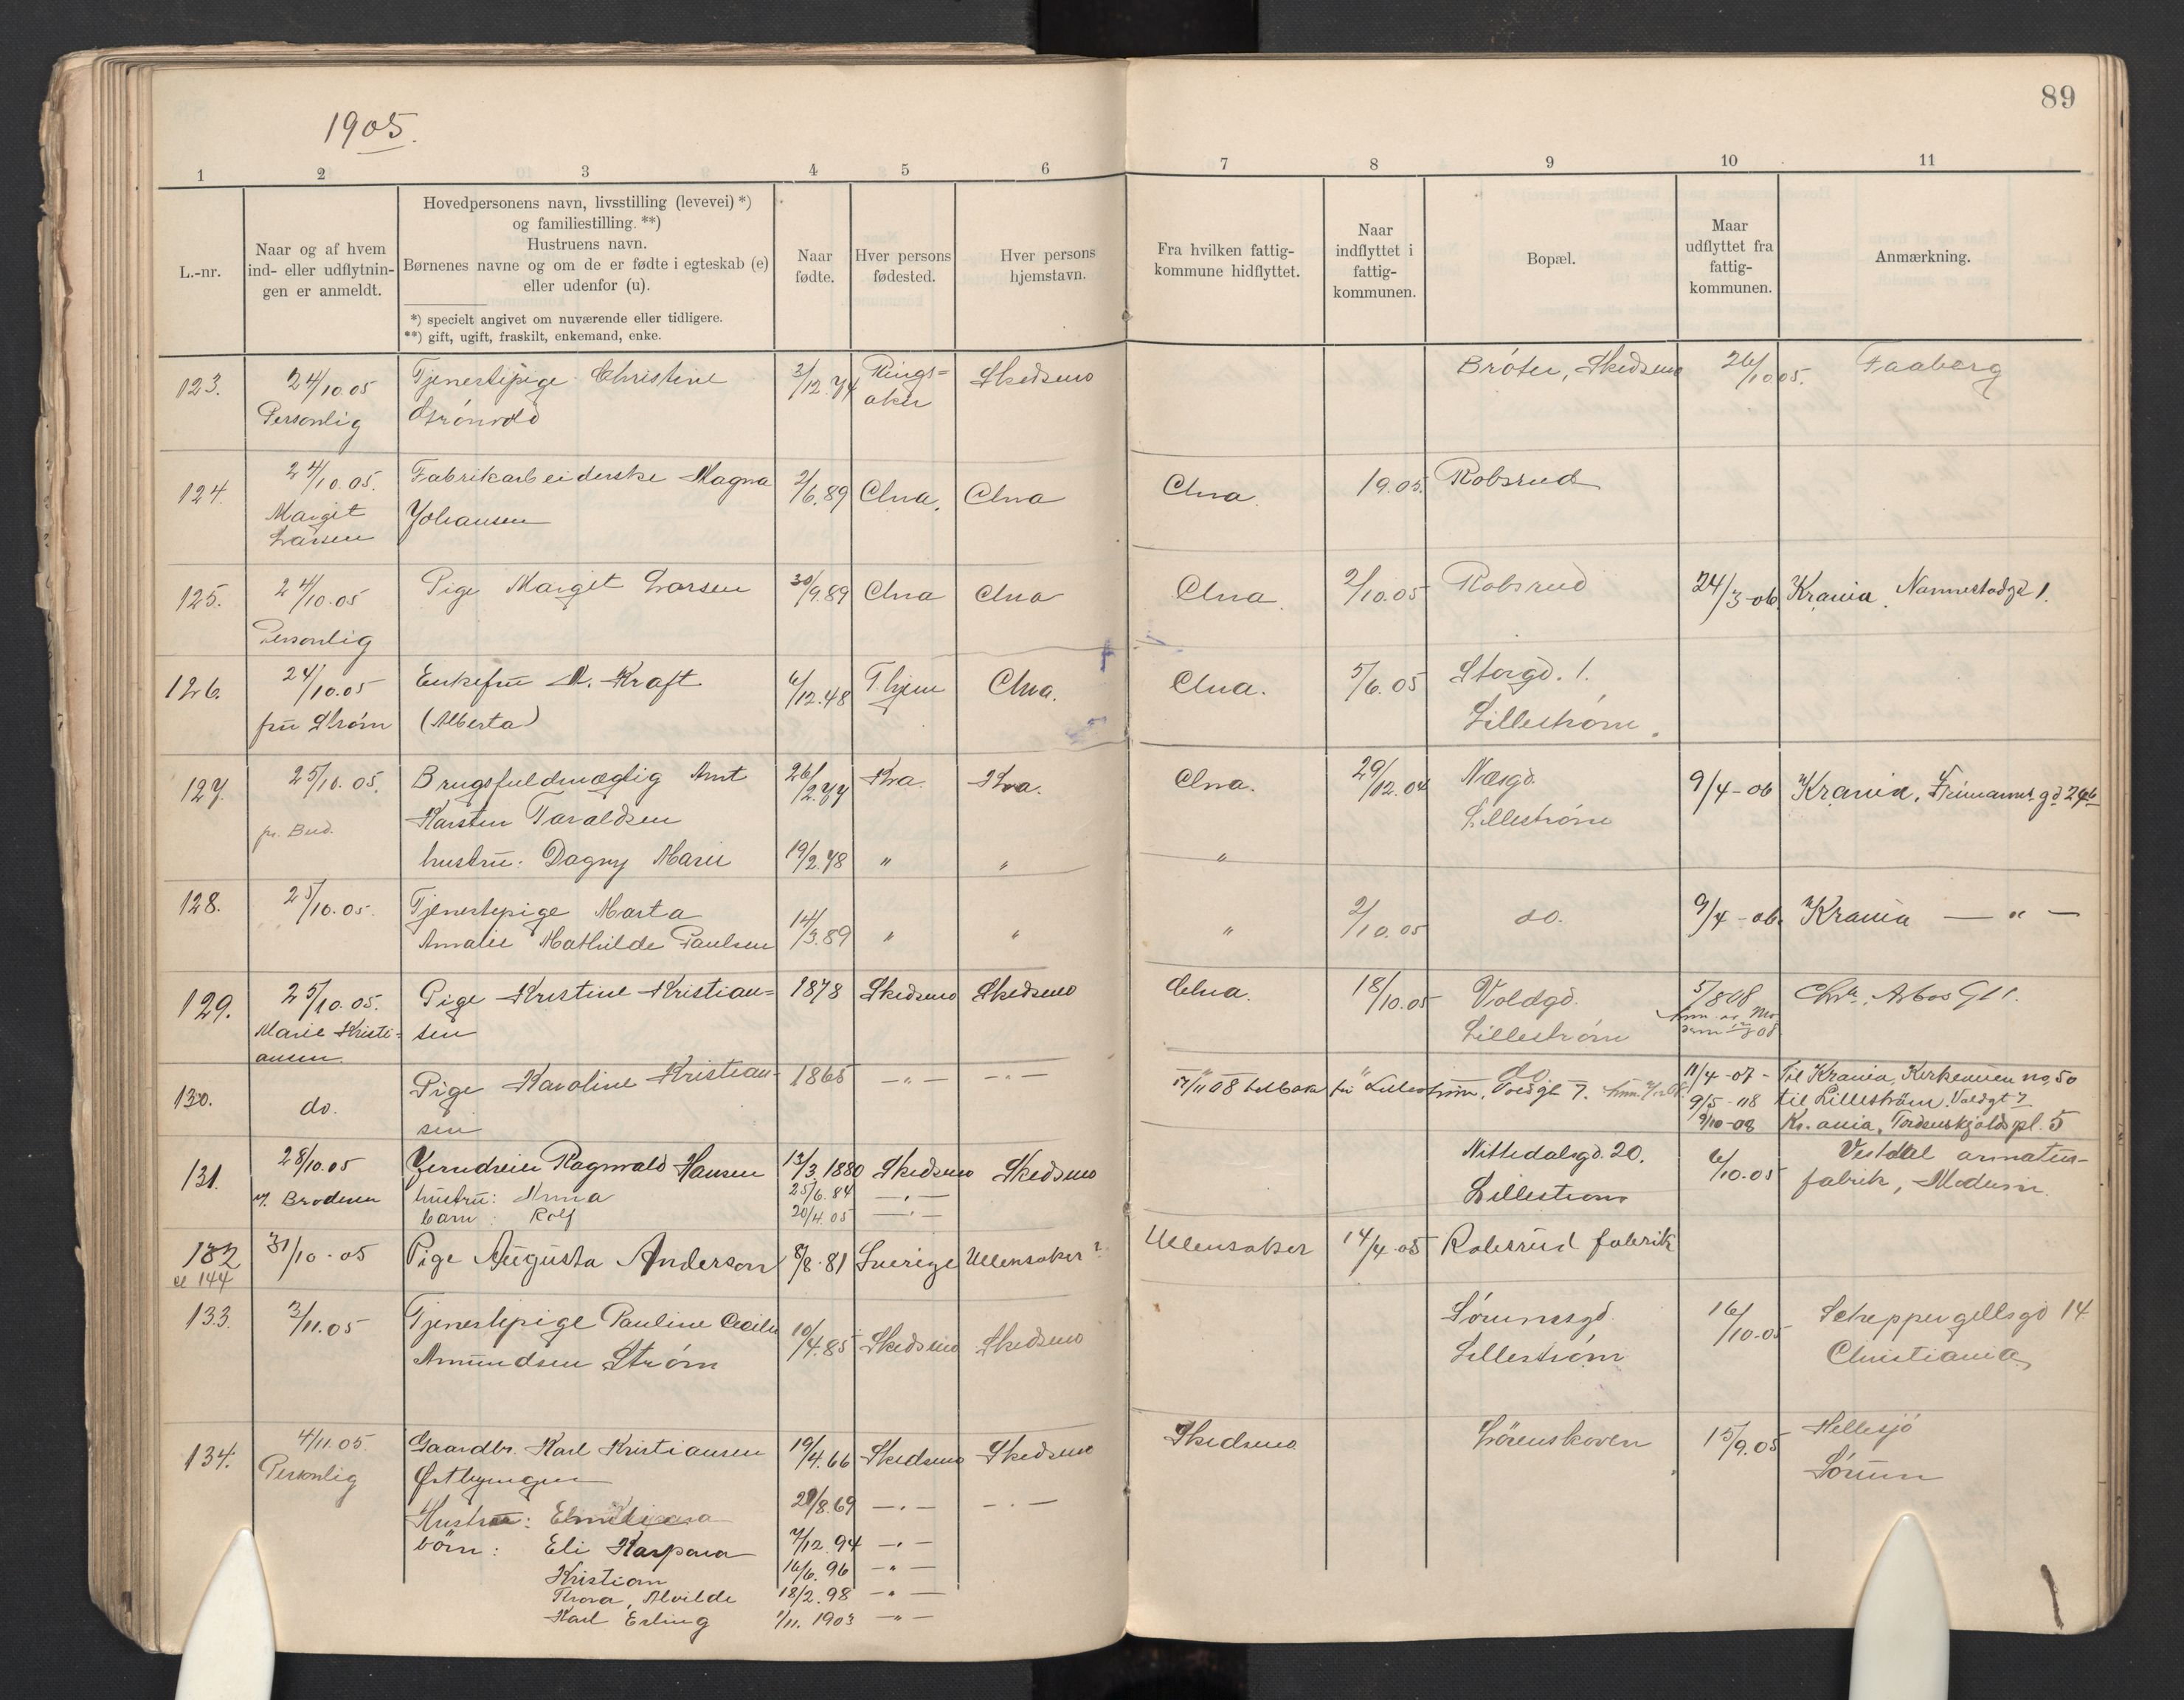 1905.
89
1 2 3 4 5 6 7 8 9 10 11
L.-nr.
Naar og af hvem
ind- eller udflytnin-
gen er anmeldt.
Hovedpersonens navn, livsstilling (levevei) *)
og familiestilling. **)
Hustruens navn.
Børnenes navne og om de er fødte i egteskab (e)
eller udenfor (u).
*) specielt angivet om nuværende eller tidligere.
**) gift, ugift, fraskilt, enkemand, enke.
Naar
fødte.
Hver persons
fødested.
Hver persons
hjemstavn.
Fra hvilken fattig-
kommune hidflyttet.
Naar
indflyttet i
fattig-
kommunen.
Bopæl.
Maar
udflyttet fra
fattig-
kommunen.
Anmærkning.
123. 24/10.05 Tjenestepige Christine 3/12.74 Rings= Skedsmo Bróter, Skedsmo 26/10.05. Faaberg
Personlig Strónvold aker
124. 24/10.05. Fabrikarbeiderske Magna 2/6.89 Chra. Chra Chra. 19.05. Robsrud
Margit Johansen
Larsen
125. 24/10.05 Pige Margit Larsen 30/9.89 Chra Chra Chra. 2/10.05 Robsrud 24/3-06 Krania. Nannestadgt 1.
Personlig
126. 24/10.05 Enkefru M. Kraft 6/12.48 Thjem Chra. Chra. 5/6.05 Storgd. 1.
fru Stróm (Alberta) Lillestróm.
127. 25/10.05. Brugsfuldmægtig Arnt 26/2.77 Kra. Kra. Chra. 29/12.04 Næsgd. 9/4-06 Krania, Frimannsgd 24b
pr. Bud. Karsten Taraldsen Lillestróm
hustru: Dagny Marie 19/2.78 " " "
128. 25/10.05. Tjenestepige Marta 14/3.89 " " " 2/10.05 do. 9/4-06. Krania — " —
Amalie Mathilde Paulsen
129. 25/10.05. Pige Kristine Kristian= 1878 Skedsmo Skedsmo Chra. 18/10.05 Voldgd. 5/8 08 Chra. Arbos Gt 1.
Marie Kristi= sen Lillestróm
ansen
130. do. Pige Karoline Kristian- 1865 — " — — " — 17/11 08 tilbake fra Lillestrøm, Voldgt 7. do. 11/4-07- Til Krania, Kirkeveien no 50
sen 9/5-08 til Lilleström. Voldgt 7
9/10-08 Kr.ania, Tordenskjolds pl. 5
131. 28/10.05 Jerndreier Ragnvald Hansen 13/3.1880 Skedsmo Skedsmo Nittedalsgd. 20. 6/10.05 Vestdal armatur-
v. Broderen hustru: Anna 25/6.84 — " — Lillestrom fabrik, Modum.
barn: Rolf 20/4.05 — " —
132 31/10-05 Pige Augusta Anderson 8/8.81 Sverige Ullensaker? Ullensaker 14/4-05 Robsrud fabrik
144
133. 3/11.05 Tjenestepige Pauline Cecilie 10/4.85 Skedsmo Skedsmo Sórumsgd. 16/10-05 Scheppegellsgd 14.
Amundsen Stróm Lillestróm Christiania
134. 4/11.05. Gaardbr. Karl Kristiansen 19/4.66 Skedsmo Skedsmo Skedsmo Lörenskoven 15/9.05 Hellesjó
Personlig Østbyengen Sórum
Hustru: 29/8.69 — " — — " —
börn: Eli Kaspara 7/12.94 — " —
Kristian 16/6.96 — " —
Thora, Alvilde 18/2.98 — " —
Karl Erling 1/11.1903 — " —